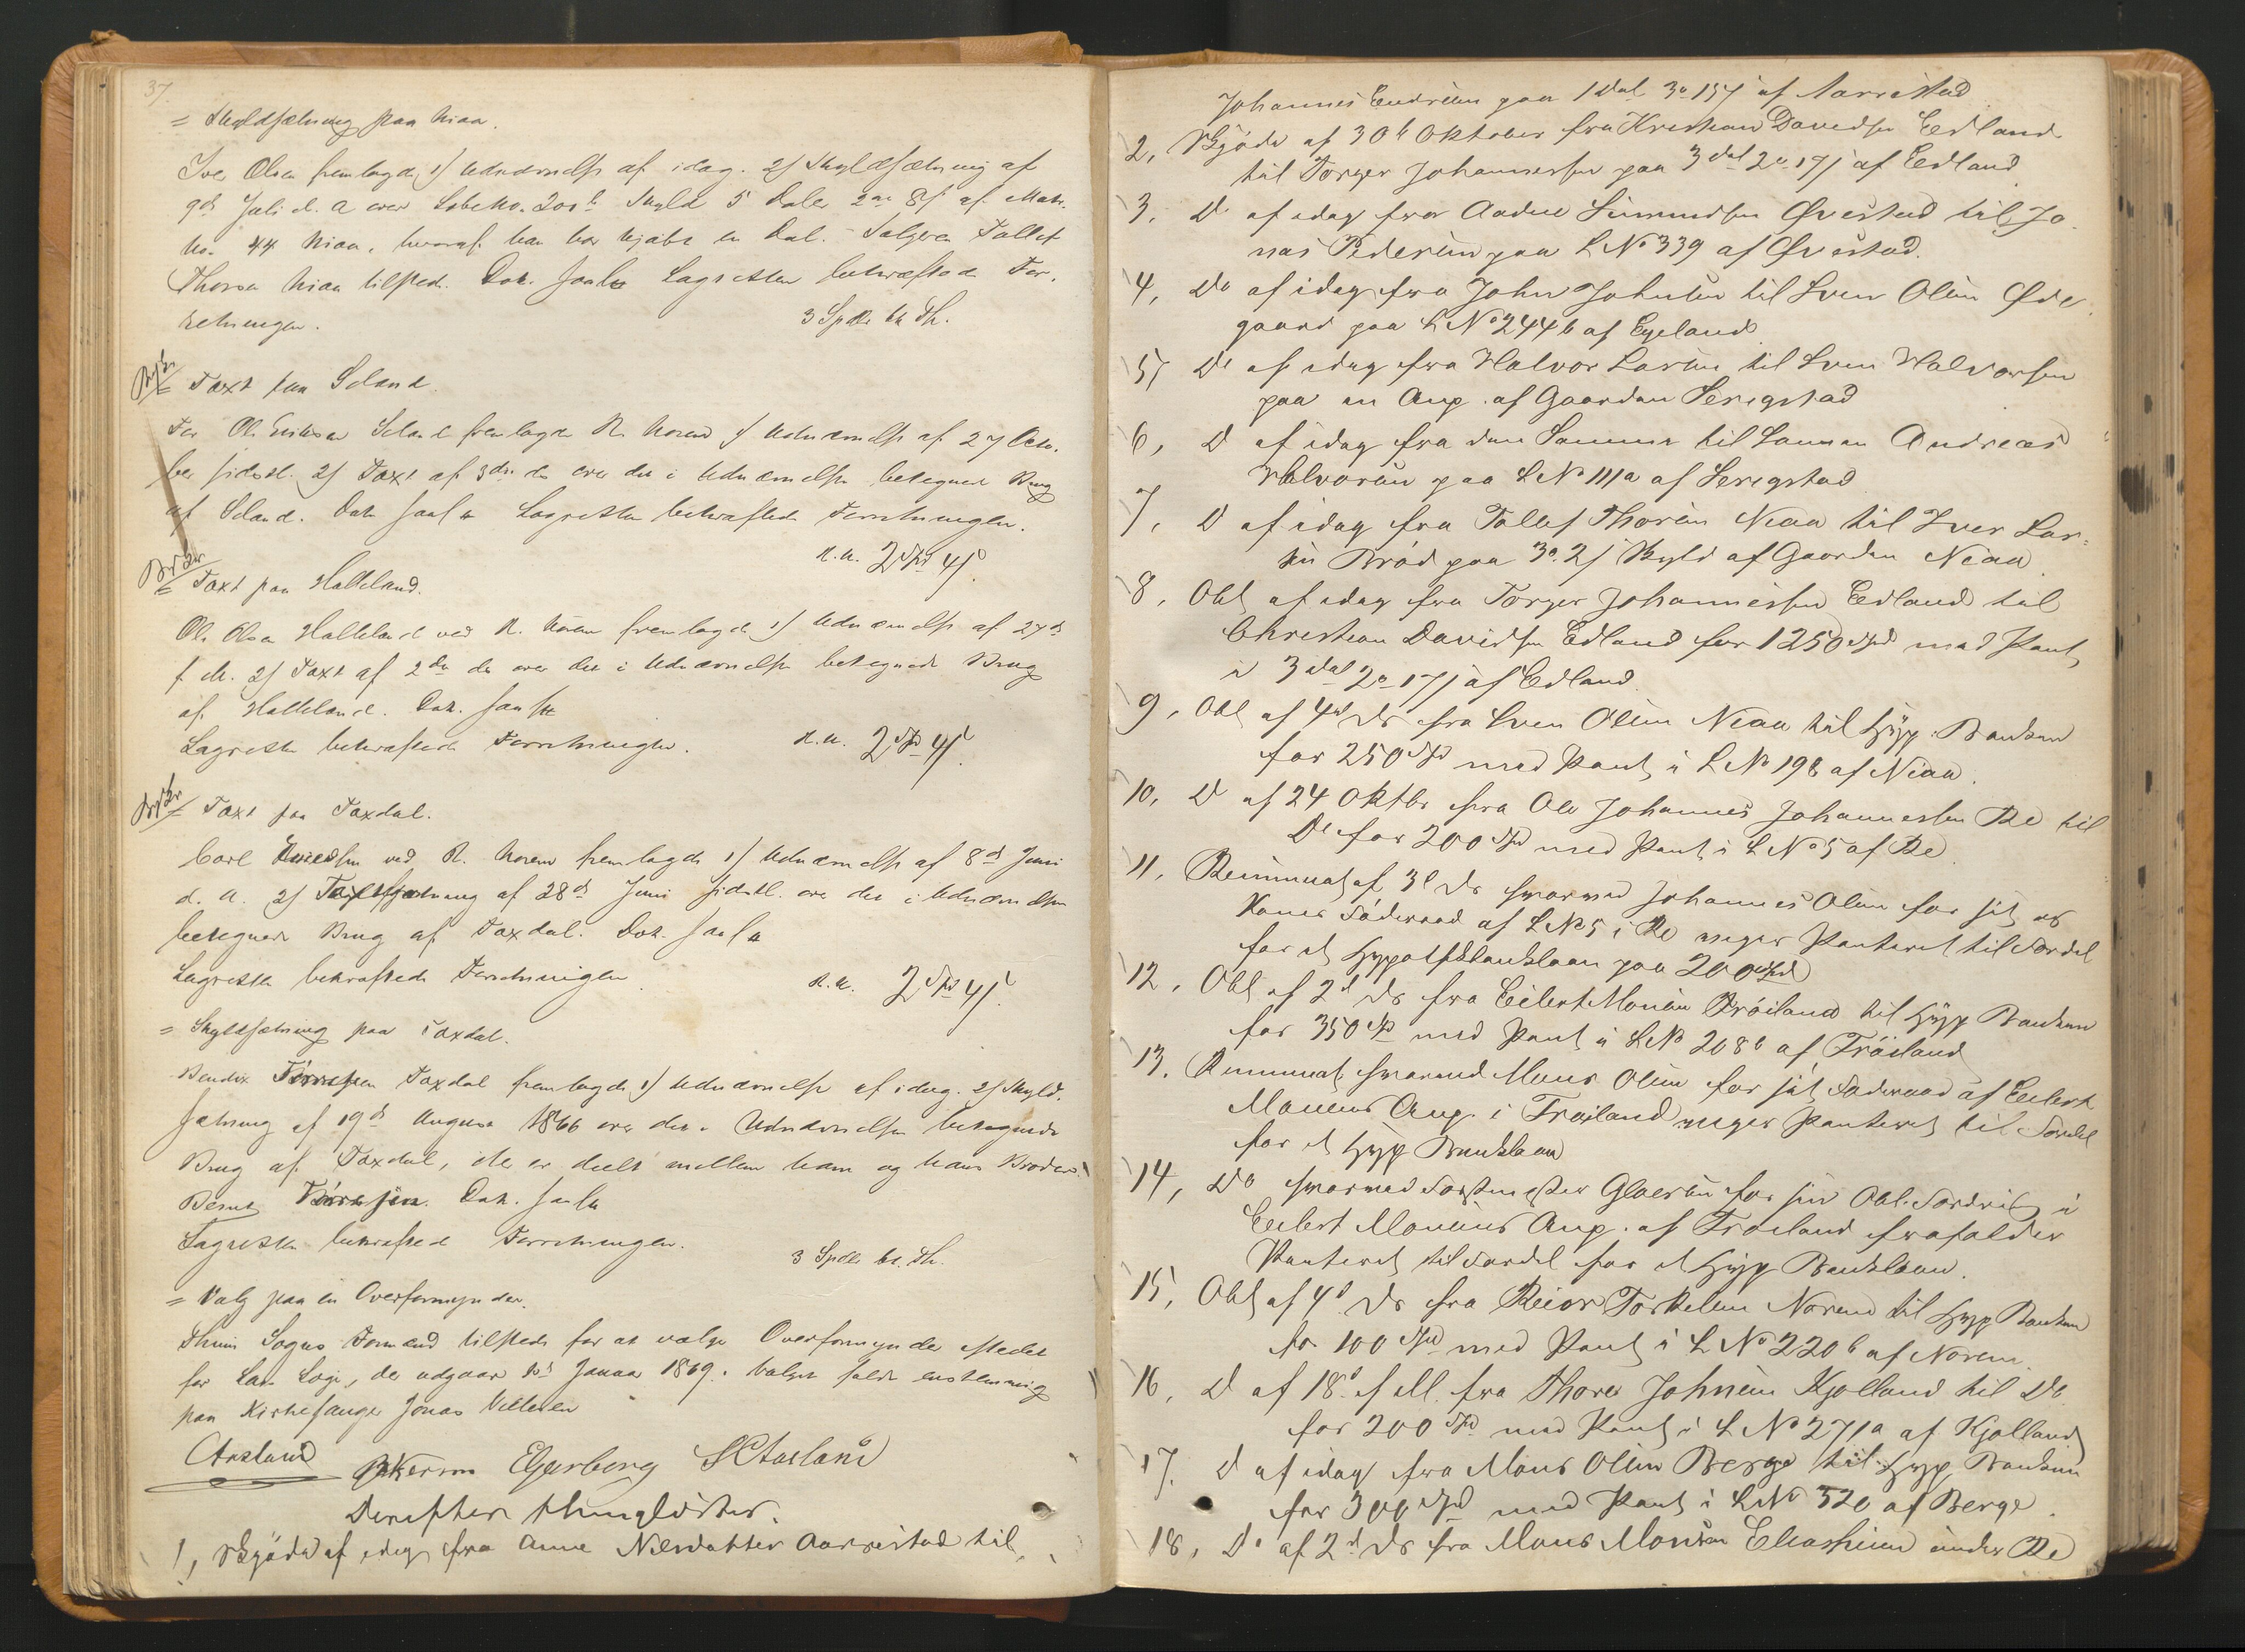 37.
= Skyldsætning paa Niaa.
Iver Olsen fremlagde 1/ Udnævnelse af idag. 2/ Skyldsætning af
9de Juli d. A over Løbeno. 200b Skyld 5 Daler 2 ort 8 s af Matr.
No. 44 Niaa, hvoraf han har kjøbt en Del. Sælgeren Tallef
Thorsen Niaa tilstede. Dok. saal. Lagretten bekræftede For-
retningen.
3 Spdlr bt. Th.
= Taxt paa Seland.
For Ole Eriksen Seland fremlagde R. Noren 1/ Udnævnelse af 27 Octo-
ber sidstl. 2/ Taxt af 3die ds over det i Udnævnelsen betegnede Brug
af Seland. Dok saal. Lagretten bekræftede Forretningen.
R.N. 2 Spd 4 s
= Taxt paa Halleland.
Ole Olsen Halleland ved R. Noren fremlagde 1/ Udnævnelse af 27de
f. M. 2/ Taxt af 2den ds over det i Udnævnelsen betegnede Brug
af Halleland. Dok. saal.
Lagretten bekræftede Forretningen.
R.N. 2 Spd 4 s.
= Taxt paa Taxdal.
Carl ved R. Noren fremlagde 1/ Udnævnelse af 8de Juni
d. A. 2/ af 28de Juni sidstl. over det i Udnævnelsen
betegnede Brug af Taxdal. Dok. saal.
Lagretten bekræftede Forretningen
R.N. 2 Spd 4 s.
= Skyldsætning paa Taxdal.
Bendix Taxdal fremlagde 1/ Udnævnelse af idag. 2/ Skyld-
sætning af 19de August 1866 over det i Udnævnelsen betegnede
Brug af Taxdal, der er deelt mellem ham og hans Broder
Bernt. Dok. saal.
Lagretten bekræftede Forretningen.
3 Spdlr bt. Th.
= Valg paa en Overformynder.
Thime Sogns Formænd tilstede for at vælge Overformynder istedet
for Lars Loge, der udgaar 1ste Januar 1869. Valget faldt enstemmig
paa Kirkesanger Jonas Vellesen
Aasland Egersberg S C Aasland
Derefter thinglæstes.
1, Skjøde af idag fra Anne Nilsdatter Aarrestad til
Johannes Endresen paa 1 Dal 3 o 15 s af Aarrestad
2, Skjøde af 30te Oktober fra Kristian Davidsen Edland
til Torger Johannessen paa 3 dal 2 o 17 s af Edland
3, Do af idag fra Aadne Simundsen Øvestad til Jo-
nas Pedersen paa L No 339 af Øvestad.
4, Do af idag fra John Johnsen til Sven Olsen Øde-
gaard paa L No 244b af Egeland
5, Do af idag fra Halvor Larsen til Sven Halvorsen
paa en Anp. af Gaarden Serigstad
6, Do af idag fra den Samme til Sønnen Andreas
Halvorsen paa L No 111a af Serigstad
7, Do af idag fra Tallef Thorsen Niaa til Iver Lar-
sen Brød paa 3 o 2 s Skyld af Gaarden Niaa
8, Obl af idag fra Torger Johannessen Edland til
Christian Davidsen Edland for 1250 Spd med Pant
i 3 dal 2 o 17 s af Edland
9, Obl af 4de Ds fra Sven Olsen Niaa til Hyp. Banken
for 250 Spd med Pant i L No 198 af Niaa.
10, Do af 24 Oktbr fra Ole Johannes Johannessen Re til
Do for 200 Spd med Pant i L No 5 af Re
11, af 3d Ds hvorved Johannes Olsen for sit og
Kones Føderaad af L No 5 i Re viger Panteret til Fordel
for et Hypothekbanklaan paa 200 Spd
12, Obl af 2d Ds fra Eilert Monsen Frøiland til Hyp Banken
for 350 Spd med Pant i L No 208b af Frøiland
13, hvorved Mons Olsen for sit Føderaad af Eilert
Monsens Anp. i Frøiland viger Panteret til Fordel
for et Hyp Banklaan
14, Do hvorved Forstmester Gløersen for sin Obl. Fordring i
Eilert Monsens Anp. af Frøiland frafalder
Panteret til Fordel for et Hyp Banklaan.
15, Obl af 4d Ds fra Reier Torkelsen Noren til Hyp Banken
for 100 Spd med Pant i L No 220b af Noren.
16, Do af 18d f M. fra Thore Johnsen Kjolland til Do
for 200 Spd med Pant i L No 271a af Kjolland
17. Do af idag fra Mons Olsen Berge til Hyp. Banken
for 300 Spd med Pant i L No 320 af Berge.
18, Do af 2d Ds fra Mons Monsen Eliasheien under Re